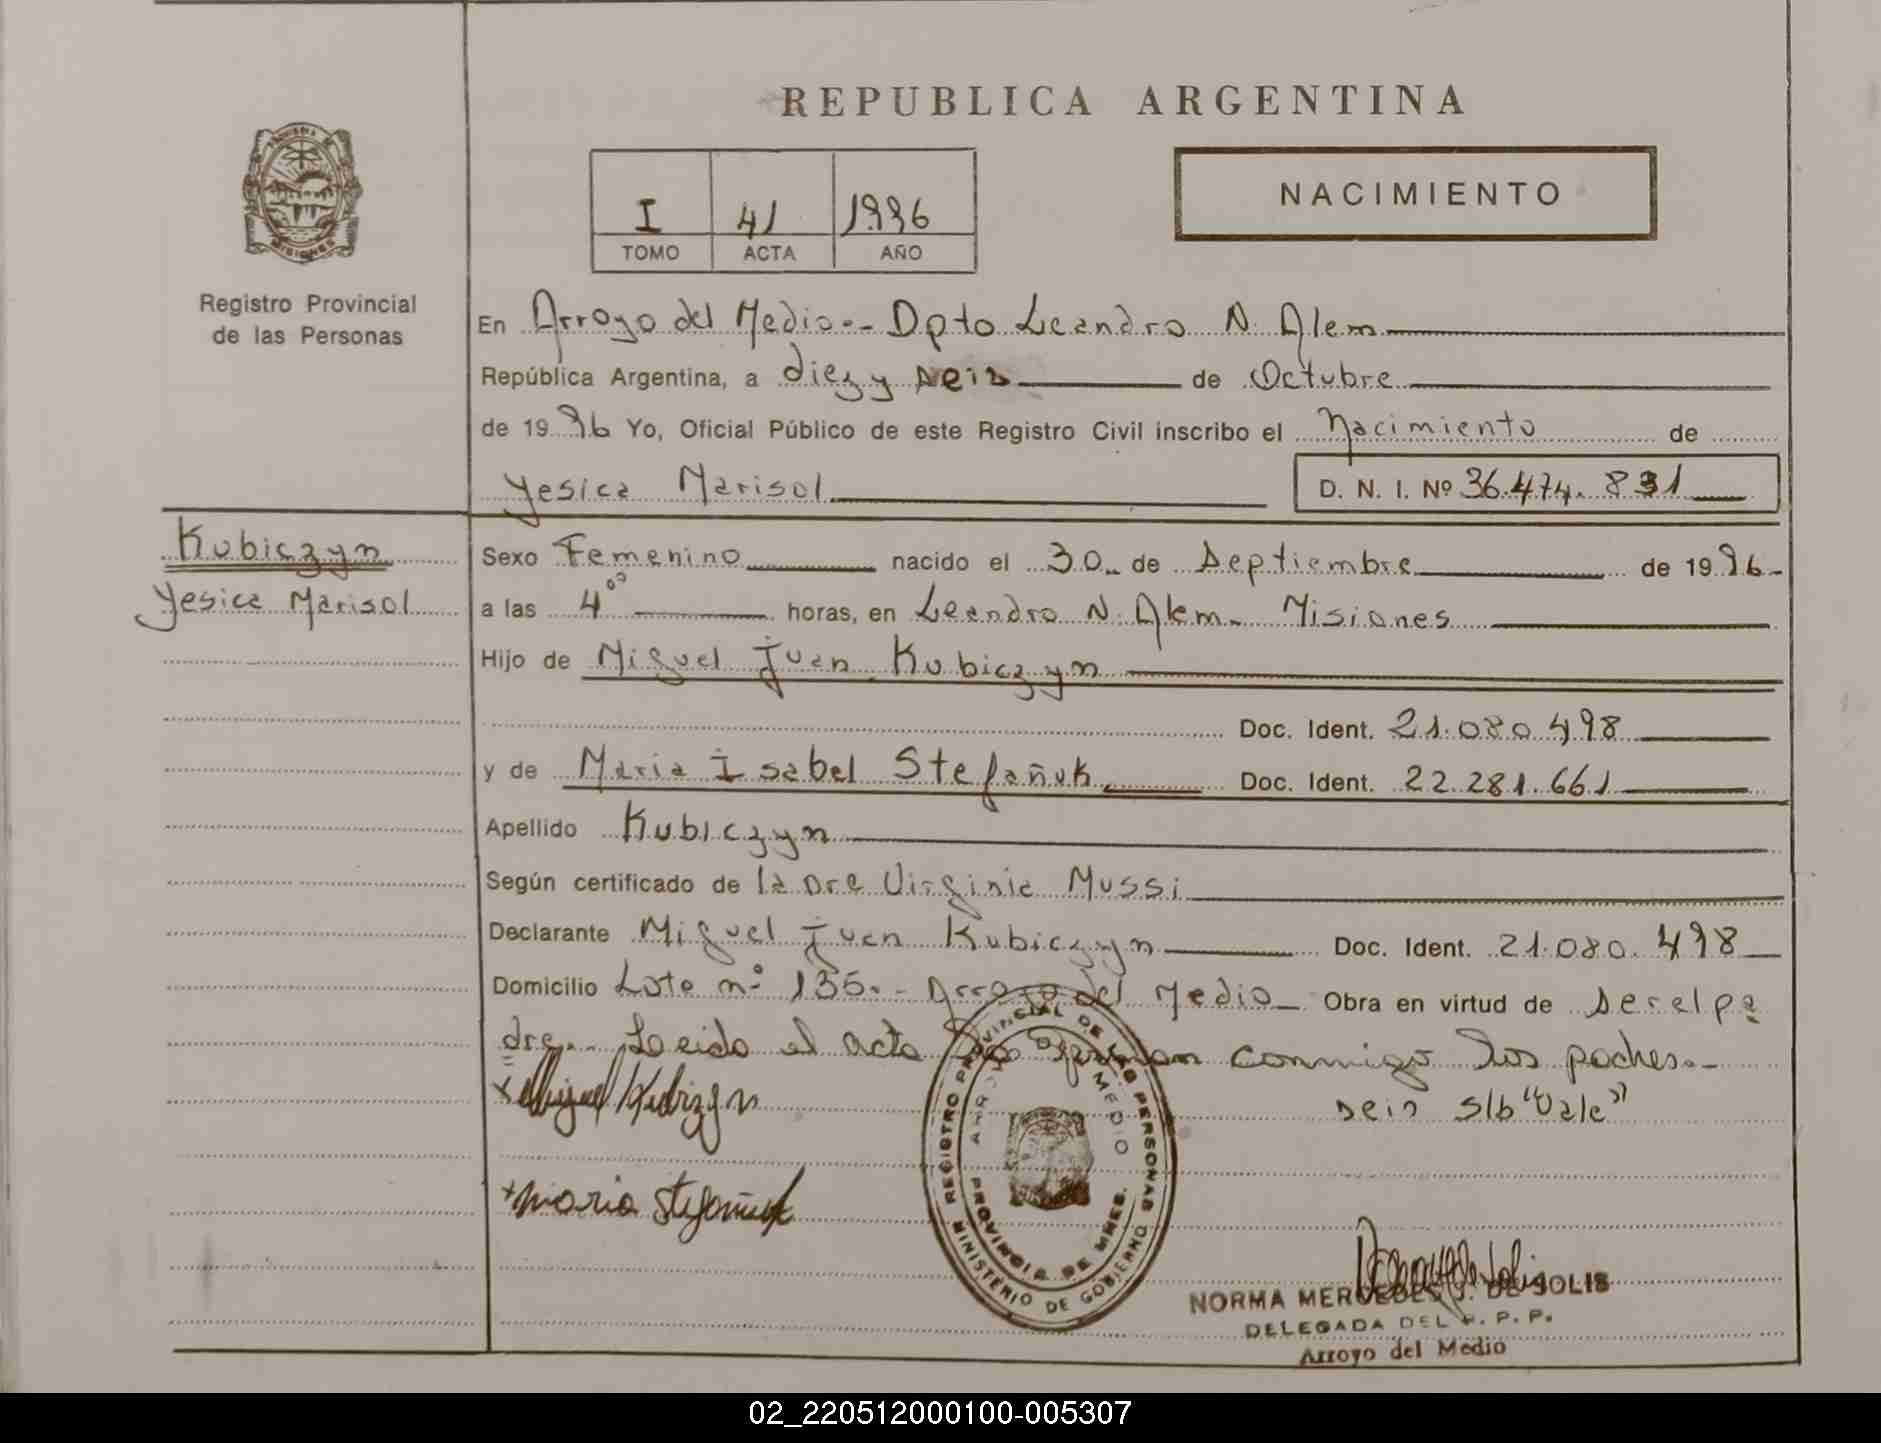 REPUBLICA ARGENTINA
I 41 1996
TOMO ACTA AÑO
NACIMIENTO
Registro Provincial
de las Personas
En Arroyo del Medio.- Dpto Leandro N. Alem
República Argentina, a diez y seis de Octubre
de 1996 Yo, Oficial Público de este Registro Civil inscribo el Nacimiento de
Yesica Marisol D. N. I. Nº 36.474.831
Kubiczyn
Yesica Marisol
Sexo Femenino nacido el 30 de Septiembre de 1996-
a las 4⁰⁰ horas, en Leandro N. Alem- Misiones
Hijo de Miguel Juan Kubiczyn
Doc. Ident. 21.080.498
y de Maria Isabel Stefañuk Doc. Ident. 22.281.661
Apellido Kubiczyn
Según certificado de la Dra Virginia Mussi
Declarante Miguel Juan Kubiczyn Doc. Ident. 21.080.498
Domicilio Lote nº 135.- Arroyo del Medio Obra en virtud de ser el pa
dre.- Leida el acta la firman conmigo los padres.-
seis s/b "Vale"
Miguel Kubizyn
Maria Stefañuk
REGISTRO PROVINCIAL DE LAS PERSONAS
MINISTERIO DE GOBIERNO
ARROYO DEL MEDIO
PROVINCIA DE MNES.
NORMA MERCEDES J. DE SOLIS
DELEGADA DEL R. P. P.
Arroyo del Medio
02_220512000100-005307